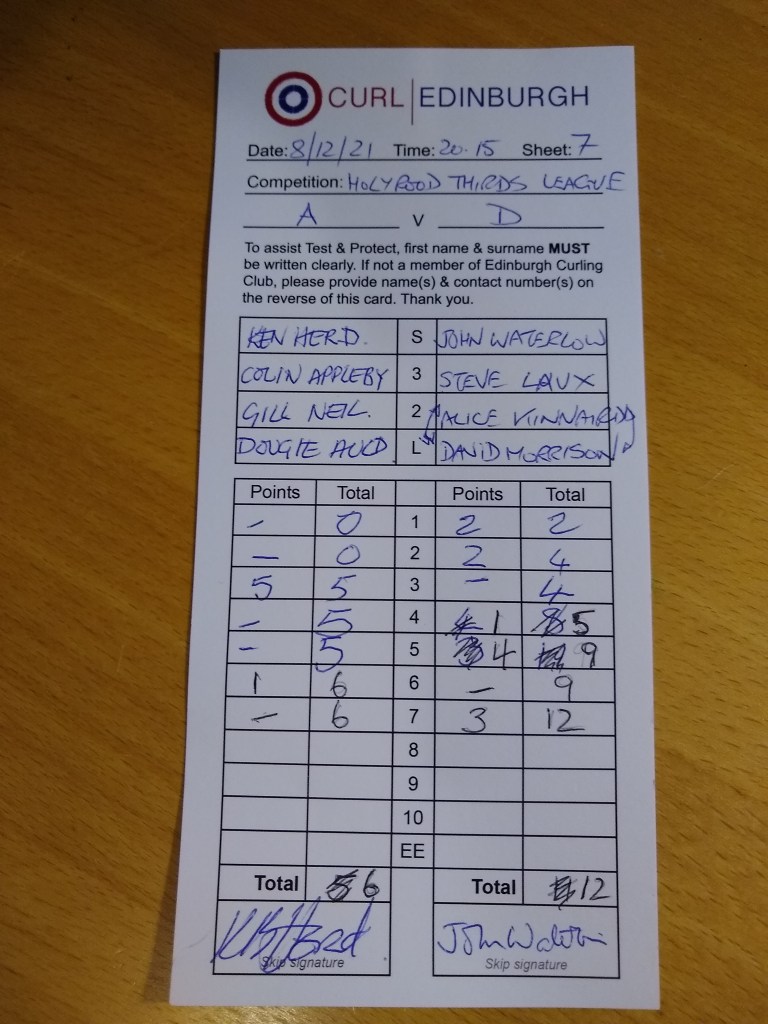 CURL | EDINBURGH
Date: 8/12/21 Time: 20.15 Sheet: 7
Competition: HOLYROOD THIRDS LEAGUE
A v D
To assist Test & Protect, first name & surname MUST
be written clearly. If not a member of Edinburgh Curling
Club, please provide name(s) & contact number(s) on
the reverse of this card. Thank you.
KEN HERD. S JOHN WATERLOW
COLIN APPLEBY 3 STEVE LAUX
GILL NEIL. 2 ALICE KINNAIRD
DOUGIE AULD L DAVID MORRISON
Points Total Points Total
- 0 1 2 2
- 0 2 2 4
5 5 3 - 4
- 5 4 1 5
- 5 5 4 9
1 6 6 - 9
- 6 7 3 12
8
9
10
EE
Total 6 Total 12
Skip signature John Skip signature